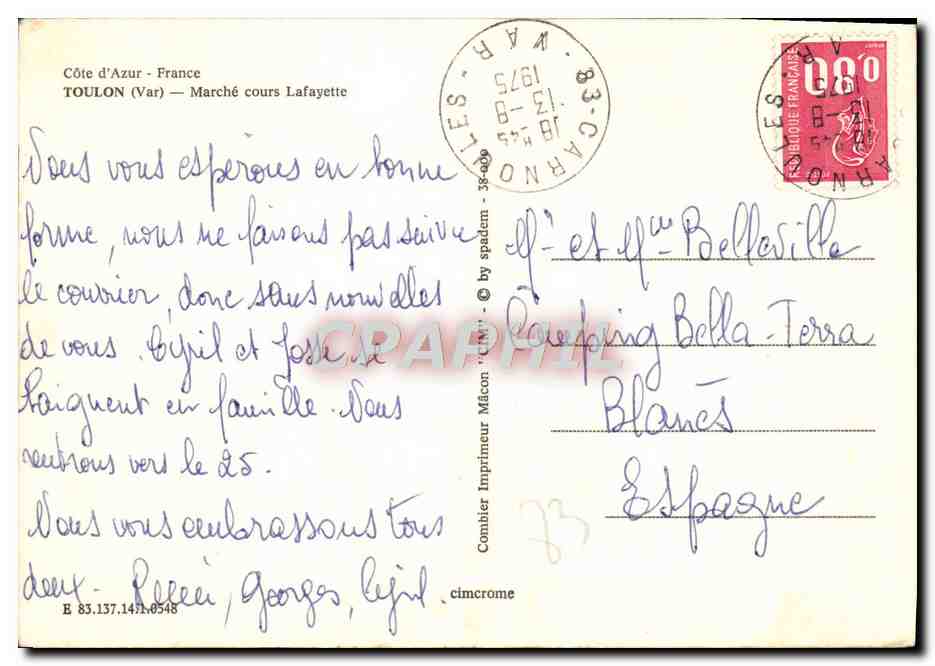 Côte d'Azur - France
TOULON (Var) — Marché cours Lafayette
Nous vous espérons en bonne
forme, nous ne faisons pas suivre
le courrier, donc sans nouvelles
de vous. Cyril et Josse se
baignent en famille. Nous
rentrons vers le 25.
Nous vous embrassons tous
deux. Georges, Cyril.
E 83.137.14.1.0548
cimcrome
Combier Imprimeur Mâcon "CIM" - © by spadem - 38-000
83-CARNOULES - VAR
18 H 45
13-8
1975
0,80
REPUBLIQUE FRANÇAISE
CARNOULES
VAR
13-8
1975
Mr et Mme Belleville
Camping Bella-Terra
Blanès
Espagne
73
CPAPHIL